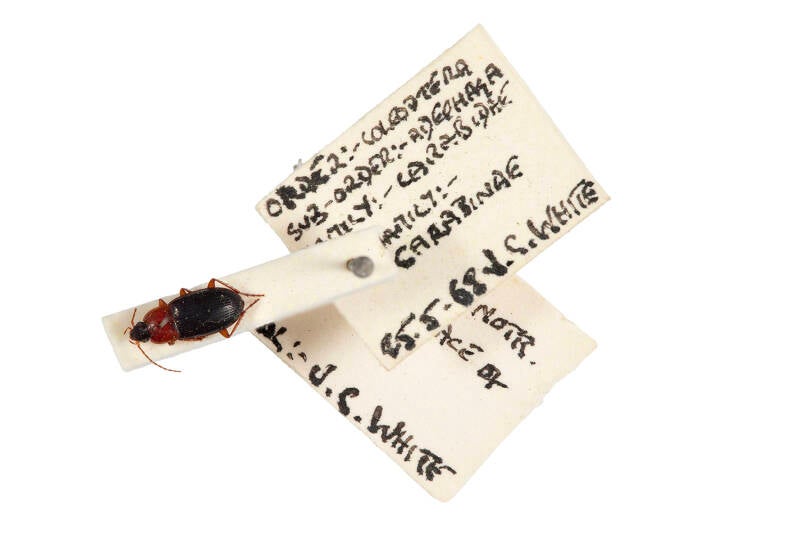 ORDER:- COLEOPTERA
SUB-ORDER:- ADEPHAGA
MILY:- CARABIDAE
AMILY:-
CARABINAE
25.5.68 J.S.WHITE
NOTTS.
J.S.WHITE